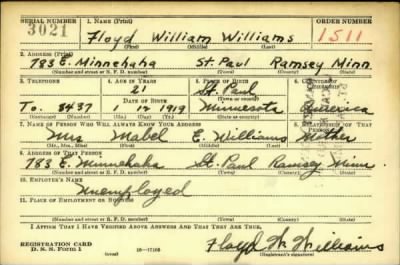 SERIAL NUMBER 1. NAME (Print) ORDER NUMBER
3021 Floyd William Williams 1511
(First) (Middle) (Last)
2. ADDRESS (Print)
783 E. Minnehaha St. Paul Ramsey Minn.
(Number and street or R. F. D. number) (Town) (County) (State)
3. TELEPHONE 4. AGE IN YEARS 5. PLACE OF BIRTH 6. COUNTRY OF CITIZENSHIP
21 St. Paul
DATE OF BIRTH (Town or county)
To. 8437 12 1919 Minnesota America
7. NAME OF PERSON WHO WILL ALWAYS KNOW YOUR ADDRESS 8. RELATIONSHIP OF THAT PERSON
Mrs Mabel E. Williams Mother
(Mr., Mrs., Miss) (First) (Middle) (Last)
9. ADDRESS OF THAT PERSON
783 E. Minnehaha St. Paul Ramsey Minn.
(Number and street or R. F. D. number) (Town) (County) (State)
10. EMPLOYER'S NAME
Unemployed
11. PLACE OF EMPLOYMENT OR BUSINESS
(Number and street or R. F. D. number) (Town) (County) (State)
I AFFIRM THAT I HAVE VERIFIED ABOVE ANSWERS AND THAT THEY ARE TRUE.
REGISTRATION CARD
D. S. S. Form 1 (over) Floyd W. Williams
(Registrant's signature)